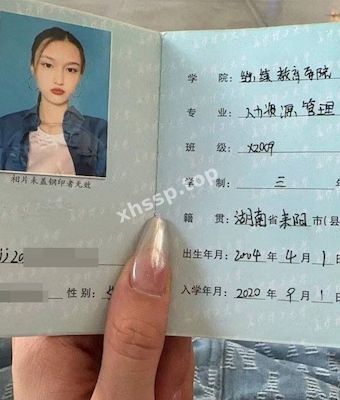 相片未盖钢印者无效
性别：
学 院：继续教育学院
专 业：人力资源管理
班 级：X2009
学 制：三 年
籍 贯：湖南省耒阳市(县
出生年月：2004年4月1日
入学年月：2020年9月1日
xhssp.top